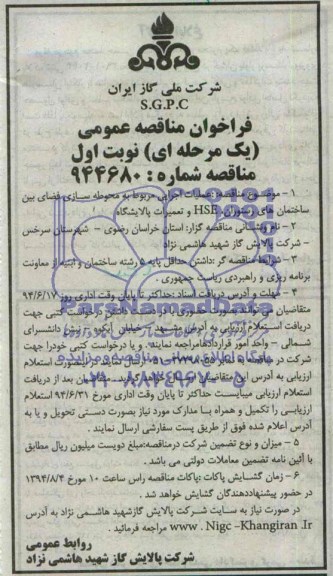 شرکت ملی گاز ایران
S.G.P.C
فراخوان مناقصه عمومی
(یک مرحله ای) نوبت اول
مناقصه شماره : ۹۴۴۶۸۰
۱ – موضوع مناقصه: عملیات اجرایی مربوط به محوطه سازی فضای بین
ساختمان های رستوران، HSE و تعمیرات پالایشگاه
۲ – نام ونشانی مناقصه گزار: استان خراسان رضوی – شهرستان سرخس
– شرکت پالایش گاز شهید هاشمی نژاد
۳ – شرایط مناقصه گر :داشتن حداقل پایه ۵ رشته ساختمان و ابنیه از معاونت
برنامه ریزی و راهبردی ریاست جمهوری .
۴ – مهلت و آدرس دریافت اسناد:حداکثر تا پایان وقت اداری روز ۹۴/۶/۱۷
متقاضیان می توانند
دریافت استعلام ارزیابی به آدرس مشهد – خیابان آبکوه – نبش دانشسرای
شمالی – واحد امور قراردادهامراجعه نمایند. و یا درخواست کتبی خودرا جهت
شرکت در مناقصه به
ارزیابی به آدرس این متقاضیان بعد از دریافت
استعلام ارزیابی میبایست حداکثر تا پایان وقت اداری مورخ ۹۴/۶/۳۱ استعلام
ارزیابی را تکمیل و همراه با مدارک مورد نیاز بصورت دستی تحویل و یا به
آدرس اعلام شده فوق از طریق پست سفارشی ارسال نمایند .
۵ – میزان و نوع تضمین شرکت درمناقصه:مبلغ دویست میلیون ریال مطابق
با آئین نامه تضمین معاملات دولتی می باشد .
۶ – زمان گشایش پاکات :پاکات مناقصه راس ساعت ۱۰ مورخ ۱۳۹۴/۸/۴
در حضور پیشنهاددهندگان گشایش خواهد شد .
در صورت نیاز به سایت شرکت پالایش گازشهید هاشمی نژاد به آدرس
www . Nigc –Khangiran .Ir مراجعه فرمائید .
روابط عمومی
شرکت پالایش گاز شهید هاشمی نژاد
ParsNamadData
پایگاه اطلاع رسانی مناقصه و مزایده
۰۲۱-۸۸۳۴۹۶۷۰-۵